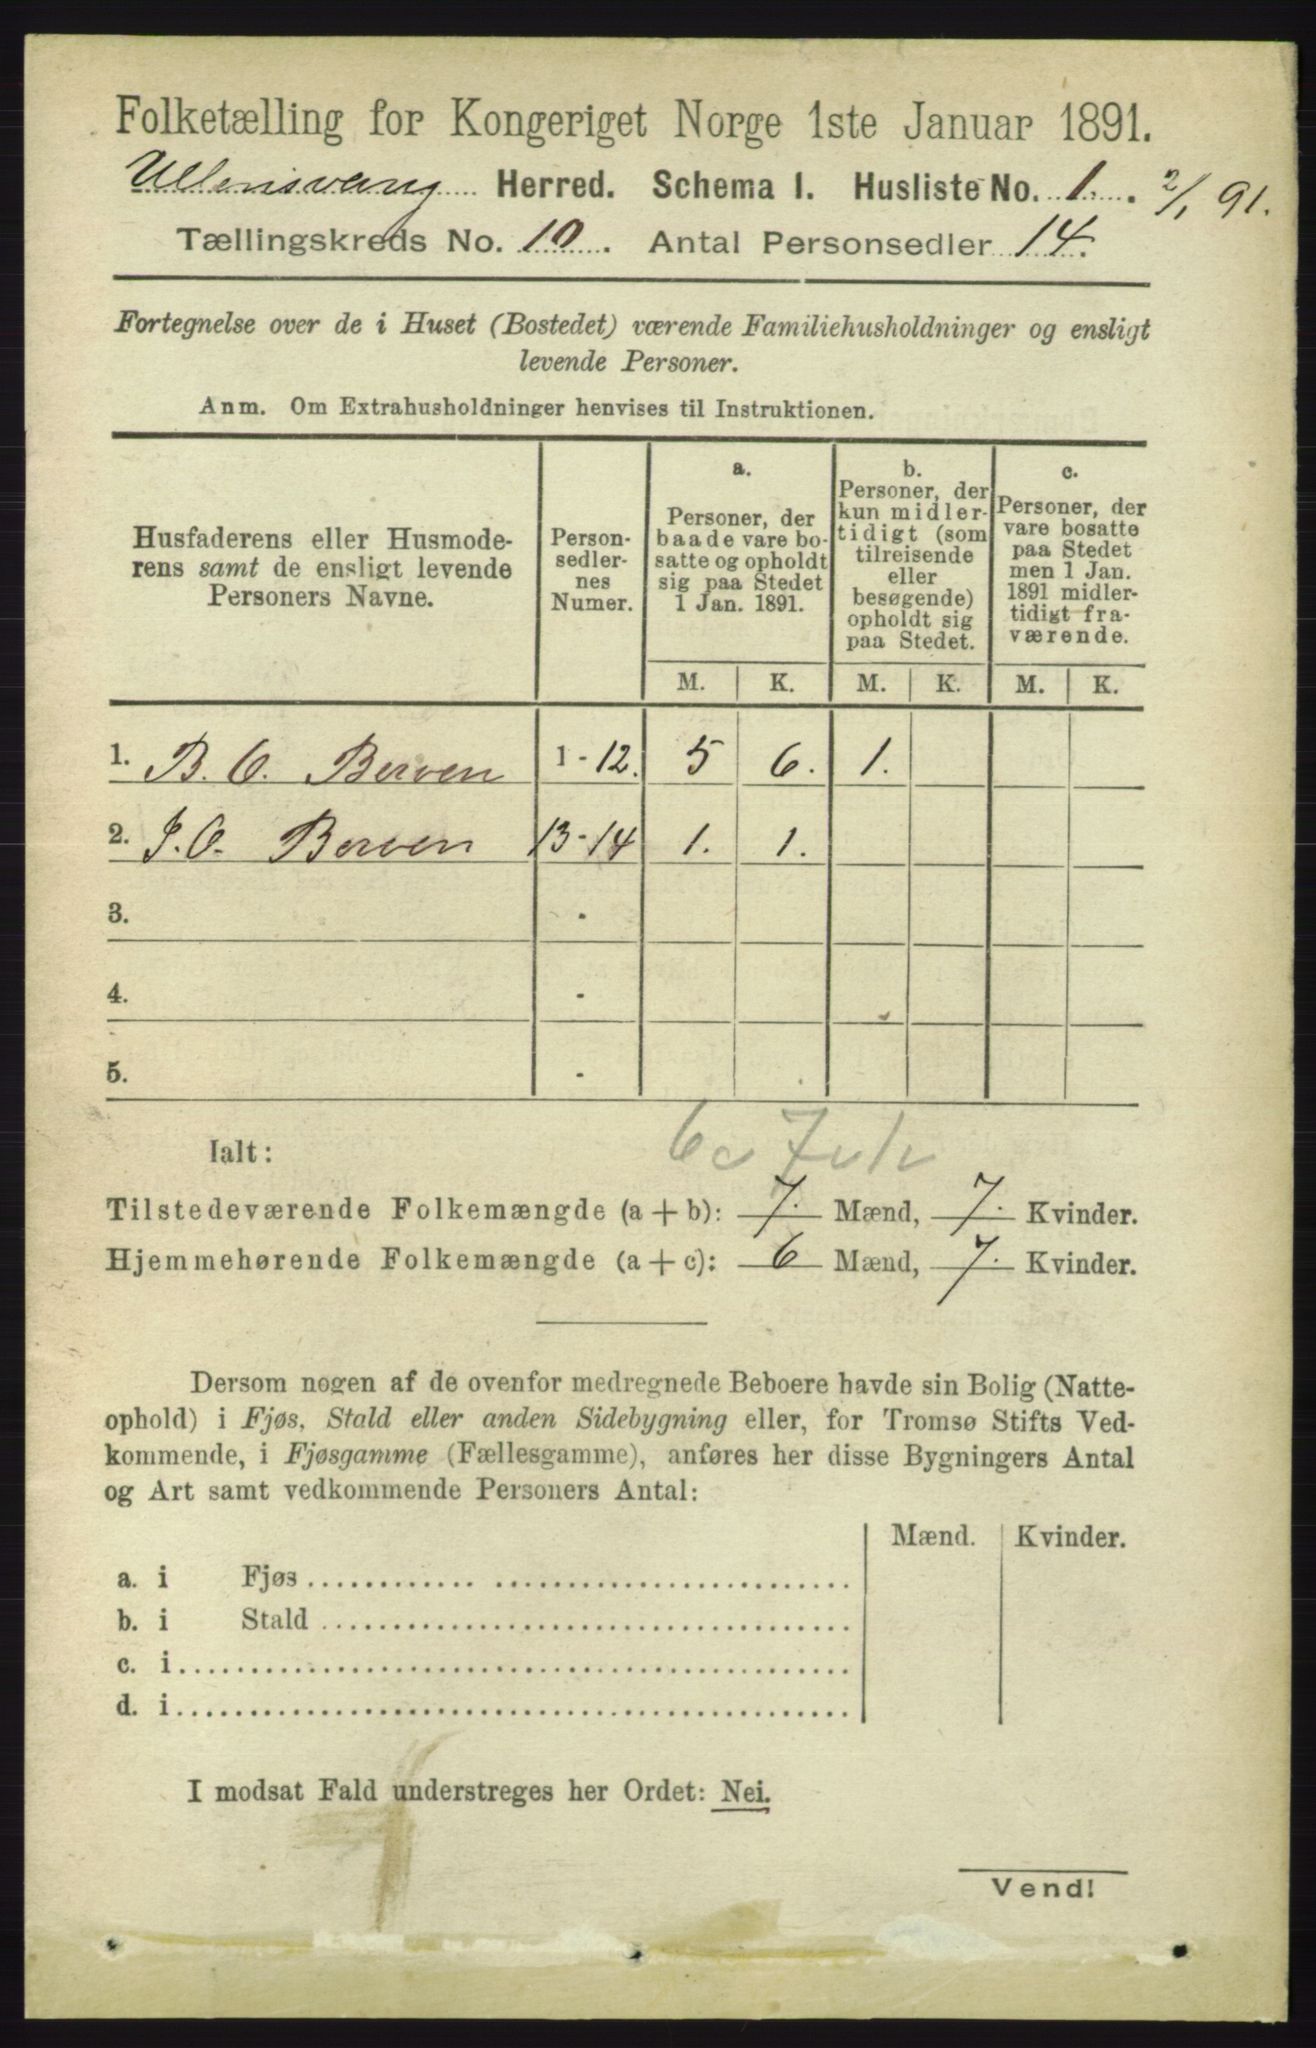 Folketælling for Kongeriget Norge 1ste Januar 1891.
Ullensvang Herred. Schema 1. Husliste No. 1. 2/1 91.
Tællingskreds No. 10. Antal Personsedler 14.
Fortegnelse over de i Huset (Bostedet) værende Familiehusholdninger og ensligt
levende Personer.
Anm. Om Extrahusholdninger henvises til Instruktionen.
Husfaderens eller Husmode-
rens samt de ensligt levende
Personers Navne.
Person-
sedler-
nes
Numer.
a.
Personer, der
baade vare bo-
satte og opholdt
sig paa Stedet
1 Jan. 1891.
b.
Personer, der
kun midler-
tidigt (som
tilreisende
eller
besøgende)
opholdt sig
paa Stedet.
c.
Personer, der
vare bosatte
paa Stedet
men 1 Jan.
1891 midler-
tidigt fra-
værende.
M. K. M. K. M. K.
1. B. O. Berven 1-12. 5 6. 1.
2. J. O. Berven 13-14 1. 1.
3. -
4. -
5. -
Ialt:
Tilstedeværende Folkemængde (a + b): 7. Mænd, 7. Kvinder.
Hjemmehørende Folkemængde (a + c): 6 Mænd, 7. Kvinder.
Dersom nogen af de ovenfor medregnede Beboere havde sin Bolig (Natte-
ophold) i Fjøs, Stald eller anden Sidebygning eller, for Tromsø Stifts Ved-
kommende, i Fjøsgamme (Fællesgamme), anføres her disse Bygningers Antal
og Art samt vedkommende Personers Antal:
Mænd. Kvinder.
a. i Fjøs
b. i Stald
c. i
d. i
I modsat Fald understreges her Ordet: Nei.
Vend!